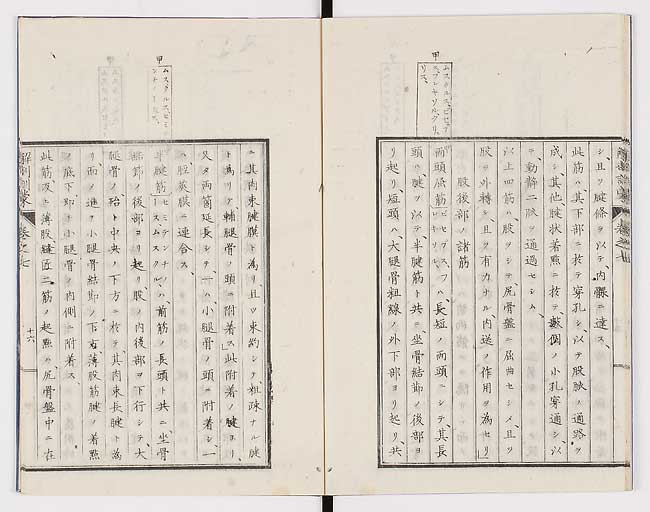 シ、且ツ腱條ヲ以テ、内髁ニ達ス、
此筋ハ其下部ニ於テ穿孔シ、以テ股脉ノ通路ヲ
成シ、其他腱状着點ニ於テ、數個ノ小孔穿通シ、以
テ動靜二脉ヲ通過セシム、
以上四筋ハ、股ヲシテ尻骨盤ニ屈曲セシメ、且ツ
股ヲ外轉シ、且ツ有力ナル、内送ノ作用ヲ為セリ、
股後部ノ諸筋
甲
ムスクルス、ビセプ
リス、
頭ハ、腱ヲ以テ半腱筋ト共ニ、坐骨結節ノ後部ヨ
リ起リ、短頭ハ、大腿骨粗線ノ外下部ヨリ起リ、共
解剖訓蒙
卷之七
ニ其肉束腱膜ト為リ、且ツ束約シテ、粗疎ナル腱
ト為リテ、輔腿骨ノ頭ニ附着ス、此附着ノ腱ヨリ、
又タ兩箇延長シテ、一ハ、小腿骨ノ頭ニ附着シ、一
ハ腔莢膜ニ連合ス、
甲
半腱筋
ハ、前筋ノ長頭ト共ニ、坐骨
結節ノ後部ヨリ起リ、股ノ内後部ヲ下行シテ、大
腿骨ノ殆ト中央ノ下方ニ於テ、其肉束長腱ト為
リ、而ノ進テ小腿骨結節ノ下、
薄股筋腱ノ着點
ノ底下、即チ小腿骨ノ内側ニ附着ス、
此筋及ヒ薄股縫匠二筋ノ起點ハ、尻骨盤中ニ在
解剖訓蒙
卷之七
十六